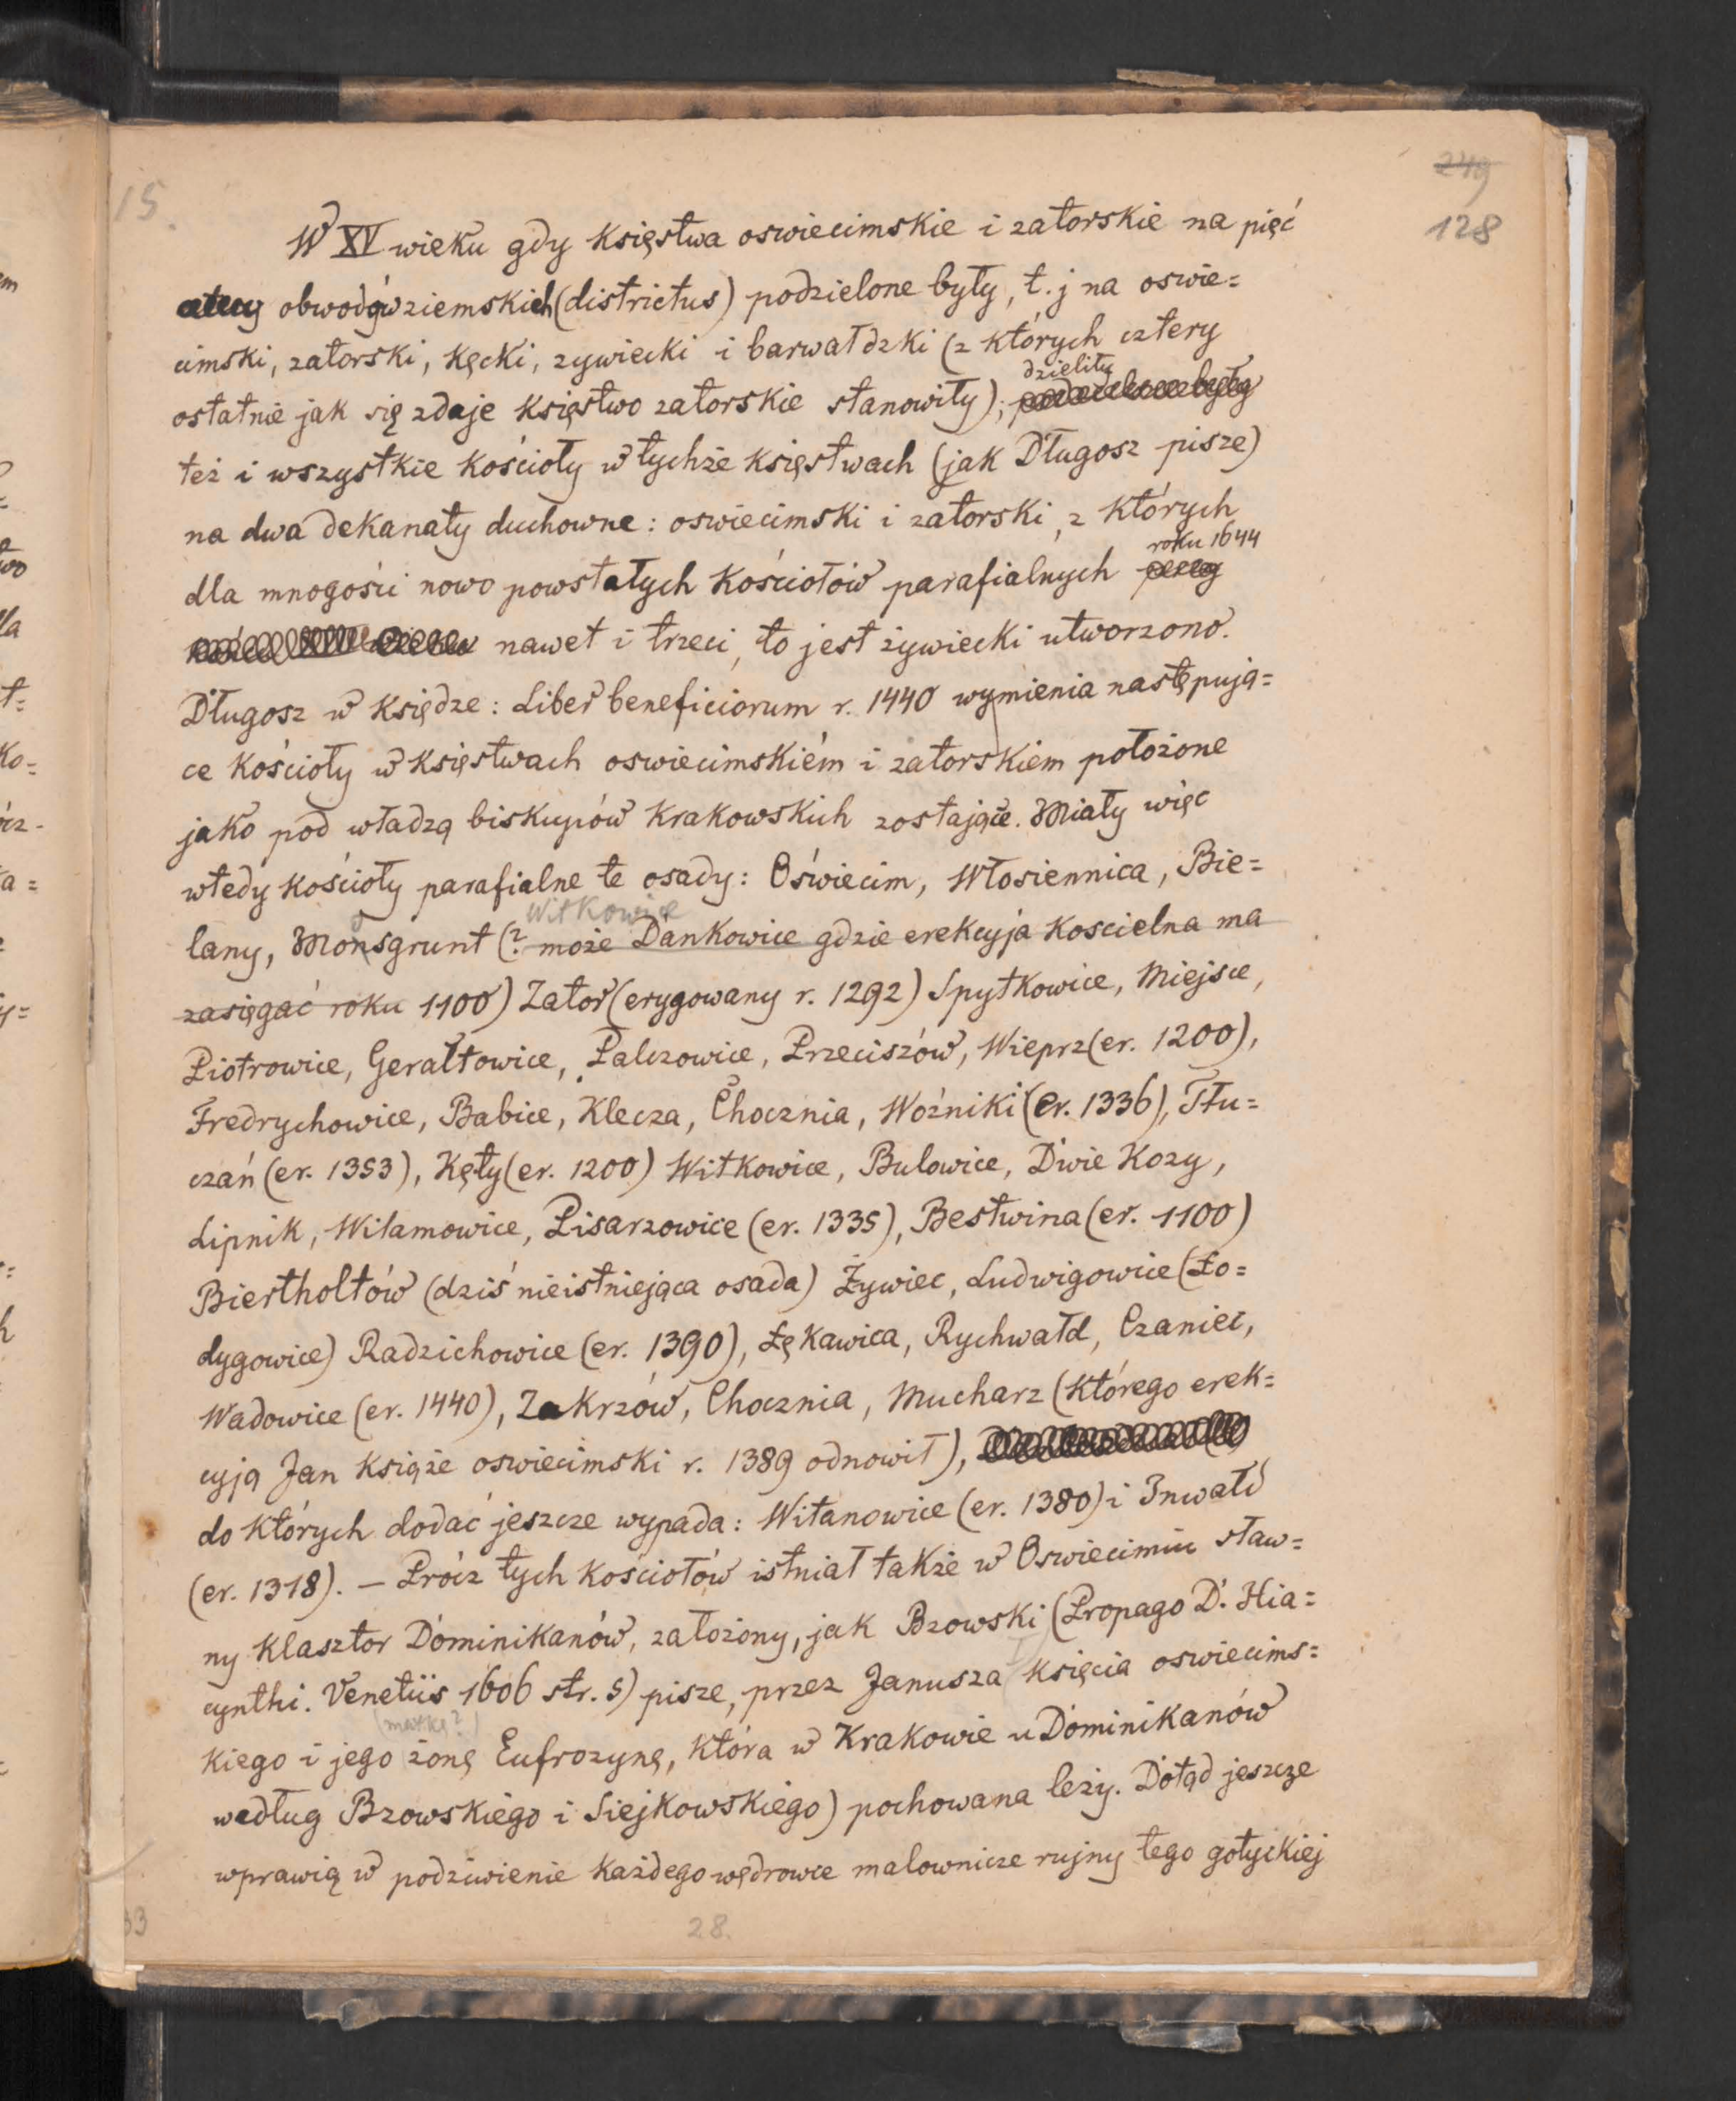 249
15.
128
W XV wieku gdy księstwa oswiecimskie i zatorskie na pięć
obwodów ziemskich (districtus) podzielone były, t.j na oswie=
cimski, zatorski, kęcki, zywiecki i barwałdzki (z których cztery
dzieliły
ostatnie jak się zdaje księstwo zatorskie stanowiły);
też i wszystkie kościoły w tychże księstwach (jak Długosz pisze)
na dwa dekanaty duchowne: oswiecimski i zatorski, z których
roku 1644
dla mnogości nowo powstałych kościołów parafialnych
nawet i trzeci, to jest żywiecki utworzono.
Długosz w księdze: Liber beneficiorum r. 1440 wymienia następują=
ce kościoły w księstwach oswiecimskiém i zatorskiem położone
jako pod władzą biskupów krakowskich zostające. Miały więc
wtedy kościoły parafialne te osady: Oświecim, Włosiennica, Bie=
Witkowice
lany, Monsgrunt (? może Dankowice gdzie erekcyja koscielna ma
zasięgać roku 1100) Zator (erygowany r. 1292) Spytkowice, Miejsce,
Piotrowice, Gerałtowice, Palczowice, Przeciszów, Wieprz (er. 1200),
Fredrychowice, Babice, Klecza, Chocznia, Woźniki (er. 1336), Tłu=
czań (er. 1353), Kęty (er. 1200) Witkowice, Bulowice, Dwie Kozy,
Lipnik, Wilamowice, Pisarzowice (er. 1335), Bestwina (er. 1100)
Biertholtów (dziś nieistniejąca osada) Żywiec, Ludwigowice (Ło=
dygowice) Radzichowice (er. 1390), Łękawica, Rychwałd, Czaniec,
Wadowice (er. 1440), Zakrzów, Chocznia, Mucharz (którego erek=
cyją Jan książe oswiecimski r. 1389 odnowił),
do których dodać jeszcze wypada: Witanowice (er. 1380) i Inwałd
(er. 1318). — Prócz tych kościołów istniał także w Oswiecimiu sław=
ny klasztor Dominikanów, założony, jak Bzowski (Propago D. Hia=
cynthi. Venetiis 1606 str. 5) pisze, przez Janusza księcia oswiecims=
(matkę?)
kiego i jego żonę Eufrozynę, która w Krakowie u Dominikanów
według Bzowskiego i Siejkowskiego) pochowana leży. Dotąd jeszcze
wprawią w podziwienie każdego wędrowce malownicze rujny tego gotyckiej
33
28.